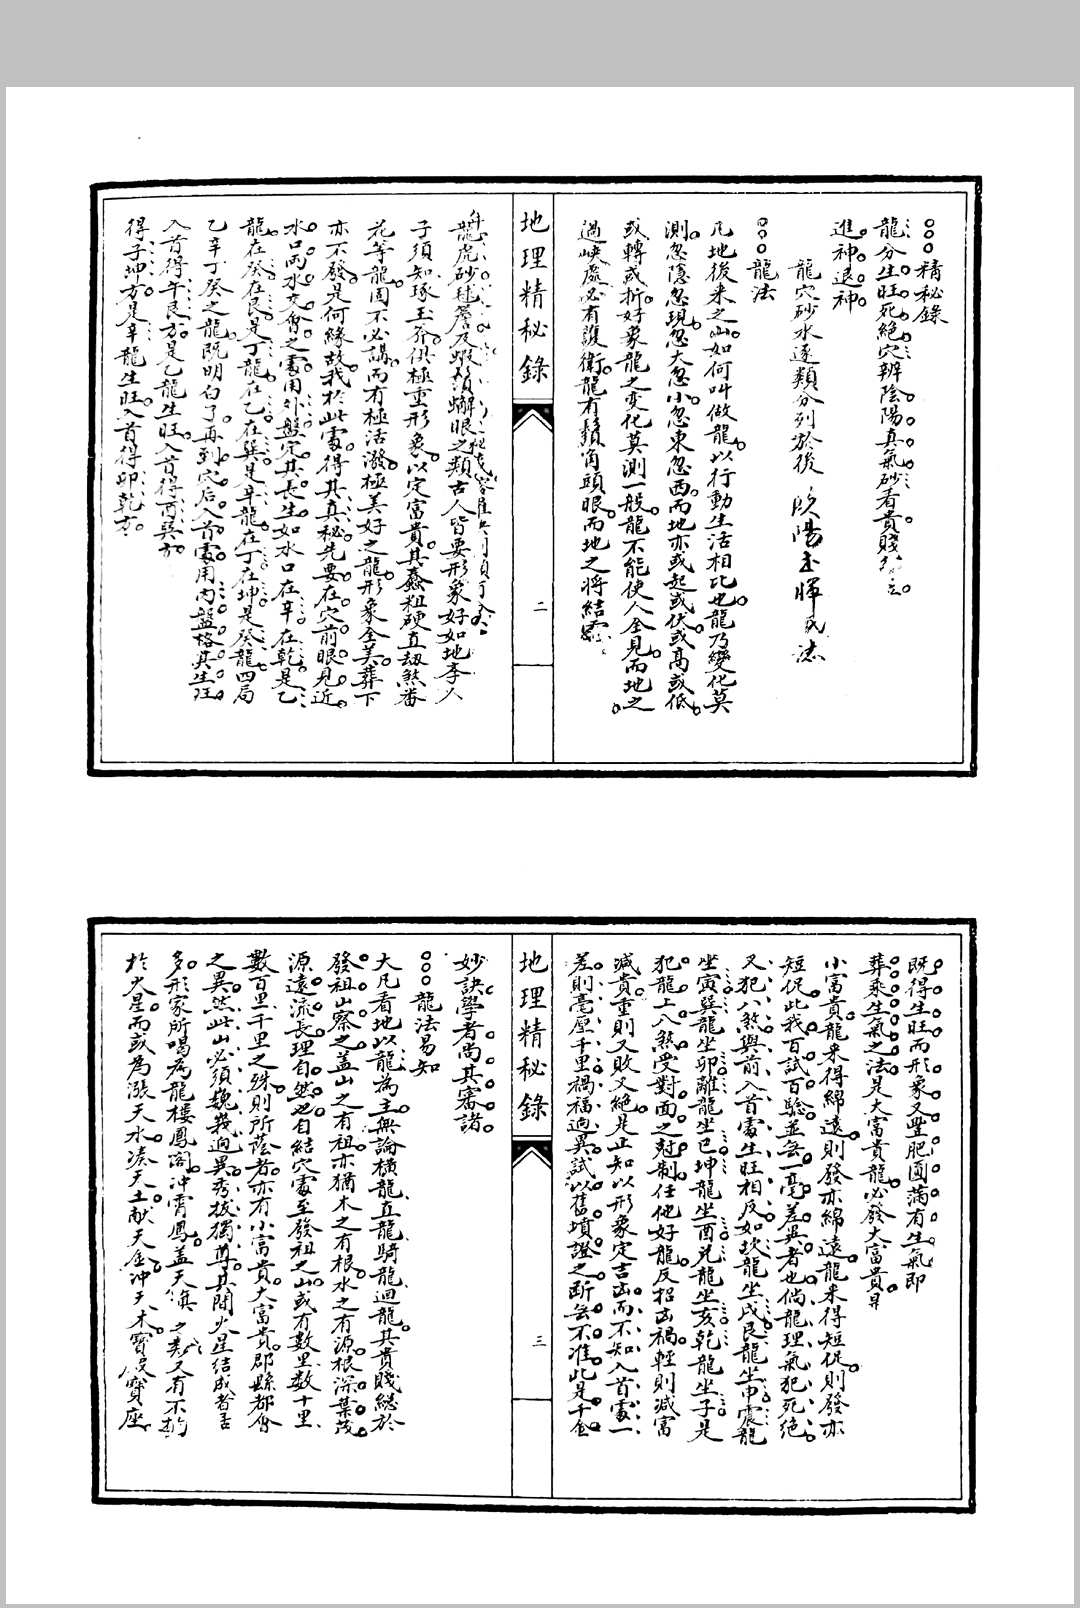 精秘錄
龍分生旺死絕穴辨陰陽真氣砂看貴賤
進神退神
龍穴砂水逐類分列於後
陽玉暉氏誌
龍法
凡地後來之山如何叫做龍以行動生活相比也龍乃變化莫
測忽隱忽現忽大忽小忽東忽西而地亦或起或伏或高或低
或轉或折好象龍之變化莫測一般龍不能使人全見而地之
過峽處必有護衛龍有鬚角頭眼而地之將結
地理精秘錄
二
龍虎砂毬簷及蝦鬚蠏眼之類古人皆要形象好如地李人
子須知琢玉斧俱極重形象以定富貴其蠢粗硬直刼煞番
花等龍固不必講而有極活潑極美好之龍形象全美葬下
亦不發是何緣故我於此處得其真秘先要在穴前眼見近
水口兩水交會之處用外盤定其長生如水口在辛在乾是乙
龍在癸在艮是丁龍在乙在巽是辛龍在丁在坤是癸龍四局
乙辛丁癸之龍既明白了再到穴后入首處用內盤格其生旺
入首得午艮方是乙龍生旺入首得酉巽方
得子坤方是辛龍生旺入首得卯乾方
既得生旺而形象又豐肥圓滿有生氣即
葬乘生氣之法是大富貴龍必發大富貴
小富貴龍來得綿遠則發亦綿遠龍來得短促則發亦
短促此我百試百驗並無一毫差異者也倘龍理氣犯死絕
又犯八煞與前入首處生旺相反如坎龍坐戌艮龍坐申震龍
坐寅巽龍坐卯離龍坐巳坤龍坐酉兌龍坐亥乾龍坐子是
犯龍上八煞受對面之尅制任他好龍反招凶禍輕則減富
減貴重則又敗又絕是止知以形象定吉凶而不知入首處一
差則毫厘千里禍福迥異試以舊墳證之斷無不准此是千金
地理精秘錄
三
妙訣學者尚其審諸
龍法易知
大凡看地以龍為主無論橫龍直龍騎龍迴龍其貴賤總於
發祖山察之蓋山之有祖亦猶木之有根水之有源根深葉茂
源遠流長理自然也自結穴處至發祖之山或有數里數十里
數百里千里之殊則所蔭者亦有小富貴大富貴郡縣都會
之異然此山必須巍峩迥異秀拔獨尊其間火星結成者居
多形家所喝為龍樓鳳阁冲霄鳳盖天之類又有不拘
於火星而或為漲天水湊天土献天金冲天木寶座